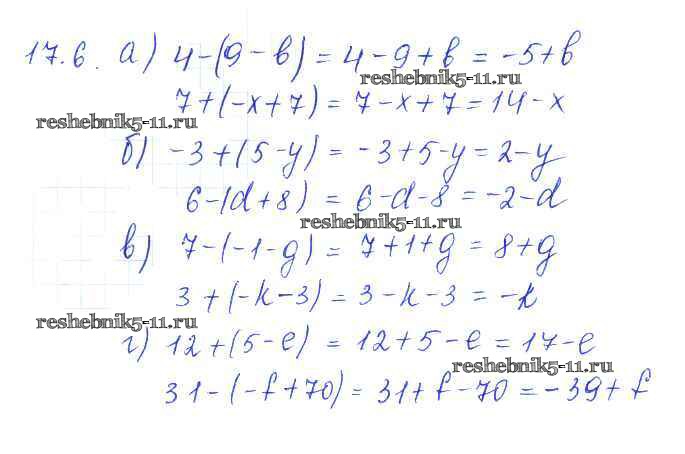 17.6. а) 4-(9-b) = 4-9+b = -5+b
reshebnik5-11.ru
7+(-x+7) = 7-x+7 = 14-x
reshebnik5-11.ru
б) -3+(5-y) = -3+5-y = 2-y
6-(d+8) = 6-d-8 = -2-d
reshebnik5-11.ru
в) 7-(-1-g) = 7+1+g = 8+g
3+(-k-3) = 3-k-3 = -k
reshebnik5-11.ru
г) 12+(5-e) = 12+5-e = 17-e
reshebnik5-11.ru
31-(-f+70) = 31+f-70 = -39+f